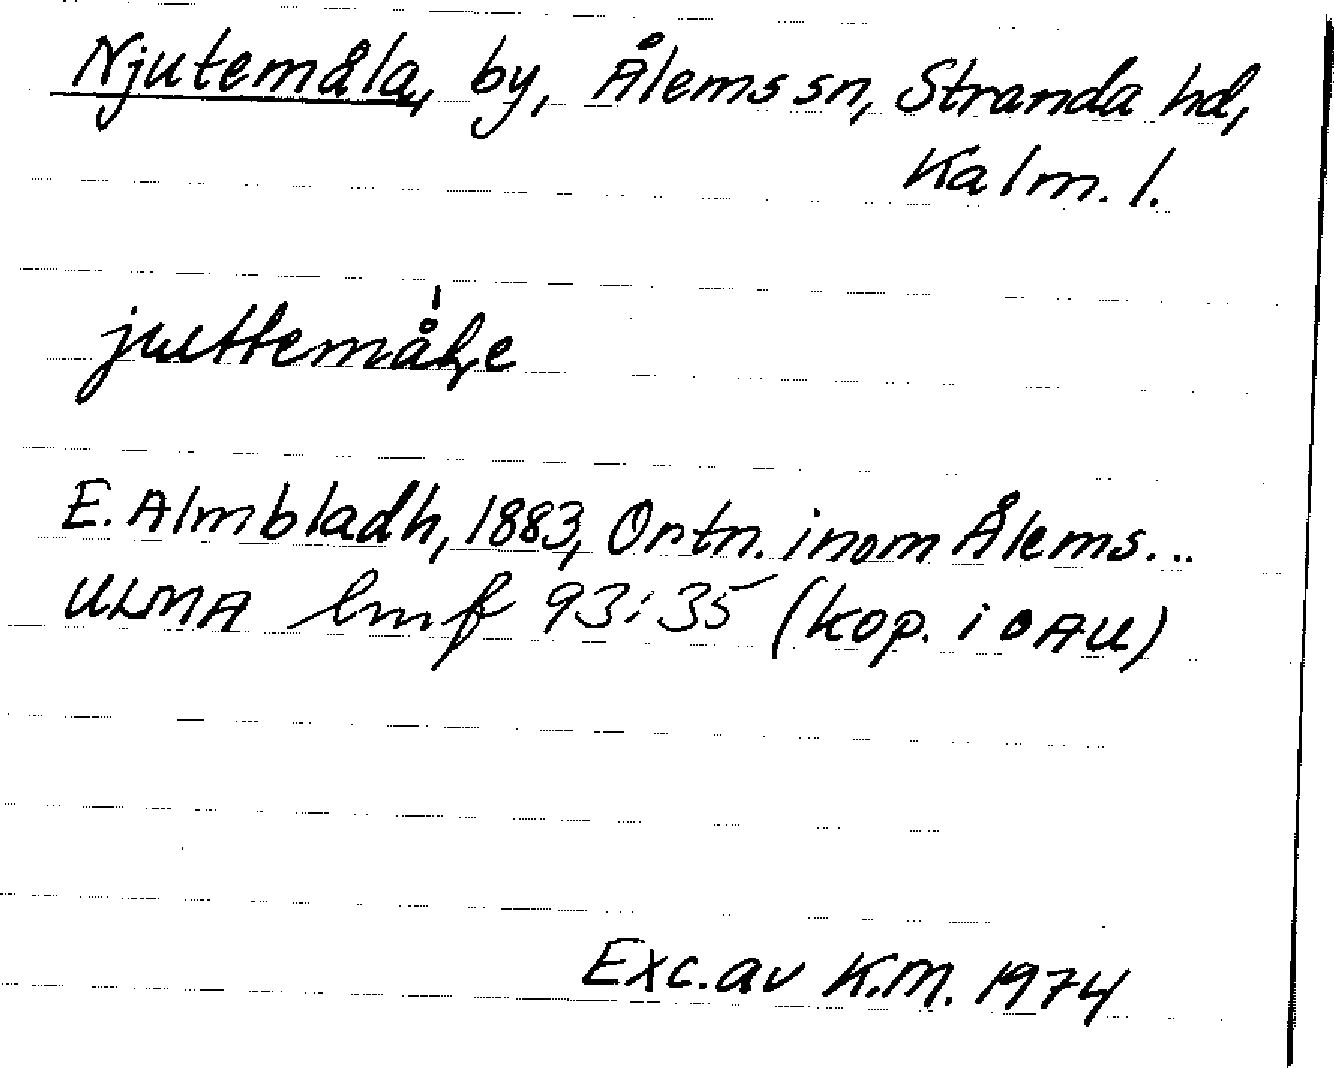 Njutemåla, by, Ålems sn, Stranda hd,
Kalm. l.
juttemå̍le
E. Almbladh, 1883, Ortn. inom Ålems...
ULMA lmf 93:35 (kop. i OAU)
Exc. av K.M. 1974